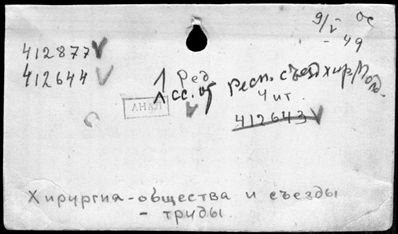 9/V-49
412877 V
412644 V
1 Ред
Респ. съезд хир
1 сс.
Чит.
412643 V
АНАЛ
Хирургия-общества и съезды
- труды.